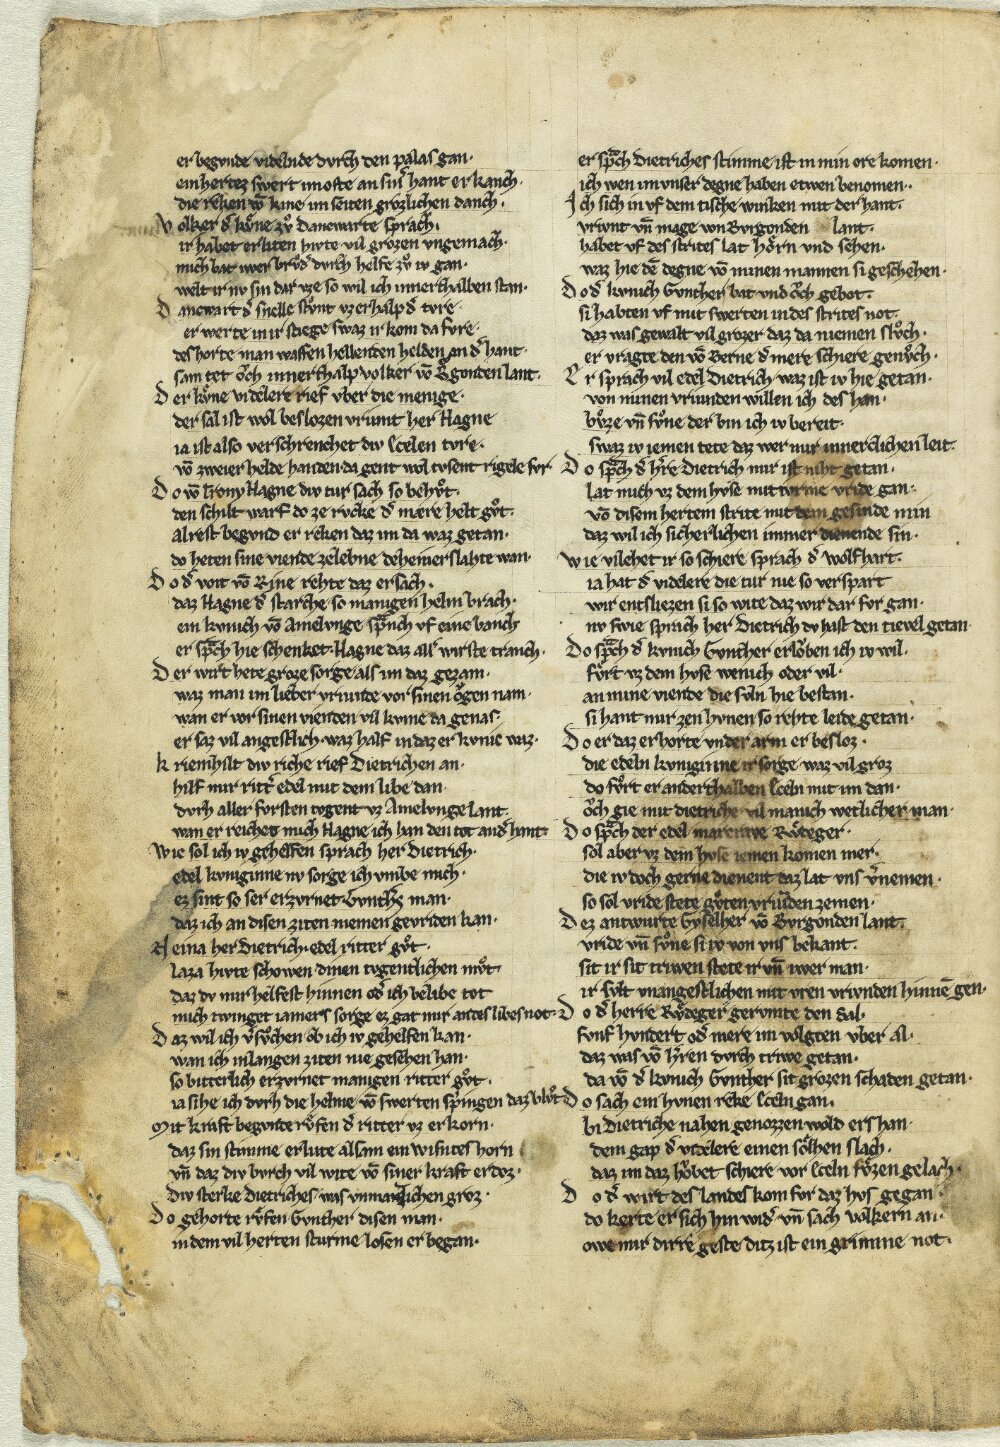 er begunde videlnde durch den palas gan·
ein hertez swert im ofte an sin̄ hant er kanch·
die reken vō rine im seiten grozlichen danch·
Volker d̄ kůne zů danewarte sprach·
ir habet erliten hivte vil grozen vngemach·
mich bat iwer brůd̄ durch helfe zů iv gan·
welt ir nv sin dar vze so wil ich innerthalben stan·
Danewart d̄ snelle stůnt vzerhalp d̄ tvre·
er werte in ir stiege swaz ir kom da fvre·
des horte man waffen hellenden helden an d̄ hant·
sam tet ǒch innerthalp volker vō Bꝰgonden lant·
Der kůne videlere rief vber die menige·
der sal ist wol beslozen vriunt her Hagne
ia ist also verschrenchet div Ecelen tvre·
vō zweier helde handen da gent wol tvsent rigele fvr
Do vō Trony Hagne div tur sach so behůt·
den schilt warf do ze rvcke d̄ mære helt gůt·
alrest begund er reken daz im da waz getan·
do heten sine viende ze lebne deheiner slahte wan·
Do d̄ voit vō Rine rehte daz ersach·
daz Hagne d̄ starche so manigen helm brach·
ein kvnich vō Amelvnge sp̄ch vf eine banch
er sp̄ch hie schenket Hagne daz all wirste tranch·
Der wirt hete groze sorge als im daz gezam·
waz man im lieber vriunde vor sinen ǒgen nam·
wan er vor sinen vienden vil kvme da genas·
er saz vil angestlich waz half in daz er kvnic waz·
Kriemhilt div riche rief Dietrichen an·
hilf mir ritt̄ edel mit dem libe dan·
dvrh aller forsten tvgent vz Amelvnge lant·
wan er reichet mich Hagne ich han den tot an d̄ hant·
Wie sol ich iv gehelfen sprach her Dietrich·
edel kvniginne nv sorge ich vmbe mich·
ez sint so ser erzvrnet Gvnthꝰs man·
daz ich an disen ziten niemen gevriden kan·
Neina her Dietrich edel ritter gůt·
laza hivte schowen dinen tvgentlichen můt·
daz dv mir helfest hinnen od̄ ich belibe tot
mich twinget iamers sorge ez gat mir an des libes not·
Daz wil ich v̄sůchen ob ich iv gehelfen kan·
wan ich in langen ziten nie gesehen han·
so bitterlich erzvrnet manigen ritter gůt·
ia sihe ich dvrh die helme vō swerten springen daz blůt
Mit kraft begvnde růfen d̄ ritter vz erkorn·
daz sin stimme erlute alsam ein wisntes horn
vn̄ daz div burch vil wite vō siner kraft erdoz·
div sterke Dietriches was vnmæzlichen groz·
Do gehorte růfen Gvnther disen man·
in dem vil herten sturme losen er began·
er sp̄ch Dietriches stimme ist in min ore komen·
ich wen im vnser degne haben etwen benomen·
Ich sich in vf dem tische winken mit der hant·
vrivnt vn̄ mage von Bvrgonden lant·
habet vf des strites lat hǒrn vnd sehen·
waz hie de̅ degne vō minen mannen si geschehen·
Do d̄ kvnich Gvnther bat vnd ǒch gebot·
si habten vf mit swerten in des strites not·
daz was gewalt vil grozer daz da niemen slůch·
er vragte den vō Berne d̄ mere schiere genůch·
Er sprach vil edel Dietrich waz ist iv hie getan·
von minen vriunden willen ich des han·
bůze vn̄ sůne der bin ich iv bereit·
swaz iv iemen tete daz wer mir innerclichen leit·
Do sp̄ch d̄ h̄re Dietrich mir ist niht getan·
lat mich vz dem hvse mit iwrme vride gan·
vō disem hertem strite mit dem gesinde min
daz wil ich sicherlichen immer dienende sin·
Wie vlehet ir so schiere sprach d̄ wolfhart·
ia hat d̄ videlere die tur nie so verspart
wir entsliezen si so wite daz wir dar for gan·
nv swie sprach her Dietrich dv hast den tievel getan·
Do sp̄ch d̄ kvnich Gvnther erlǒben ich iv wil·
fůrt vz dem hvse wenich oder vil·
an mine viende die svln hie bestan·
si hant mir zen hvnen so rehte leide getan·
Do er daz erhorte vnder arm er besloz·
die edeln kvniginne ir sorge waz vil groz
do fůrt er anderthalben Eceln mit im dan·
ǒch gie mit dietriche vil manich wetlicher man·
Do sp̄ch der edel marcrave Růdeger·
sol aber vz dem hvse iemen komen mer·
die iv doch gerne dienent daz lat vns v̄nemen·
so sol vride stete gůten vriu̅den zemen·
Dez antwurte Gyselher vō Bvrgonden lant·
vride vn̄ sůne si iv von vns bekant·
sit ir sit triwen stete ir vn̄ iwer man·
ir svlt vnangestlichen mit vren vrivnden hinne̅ gen·
Do d̄ herre Růdeger gervmte den sal·
funf hvndert od̄ mere im volgten vber al·
daz was vō h̄ren dvrch triwe getan·
da vō d̄ kvnich Gvnther sit grozen schaden getan·
Do sach ein hvnen reke Eceln gan·
bi Dietriche nahen genozzen wold ers han·
dem gap d̄ videlere einen sǒlhen slach·
daz im daz hǒbet schiere vor Eceln fůzen gelach·
Do d̄ wirt des landes kom for daz hvs gegan·
do kerte er sich hin wid̄ vn̄ sach volkern an·
owe mir dirre geste ditz ist ein grimme not·